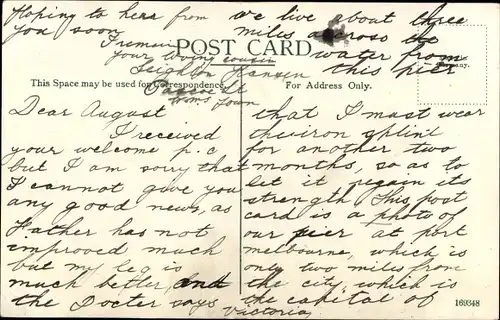 Hoping to hear from
you soon
I remain
your loving cousin
Leighton Hansen
Wms Town
POST CARD
This Space may be used for Correspondence.
Dear August
I received
your welcome p.c
but I am sorry that
I cannot give you
any good news, as
Father has not
improved much
but my leg is
much better, and
the Docter says
we live about three
miles across the
water from
this pier
For Address Only.
that I must wear
the iron splint
for another two
months, so as to
let it regain its
strength This post
card is a photo of
our pier at port
melbourne, which is
only two miles from
the city, which is
the capital of
Victoria
169348